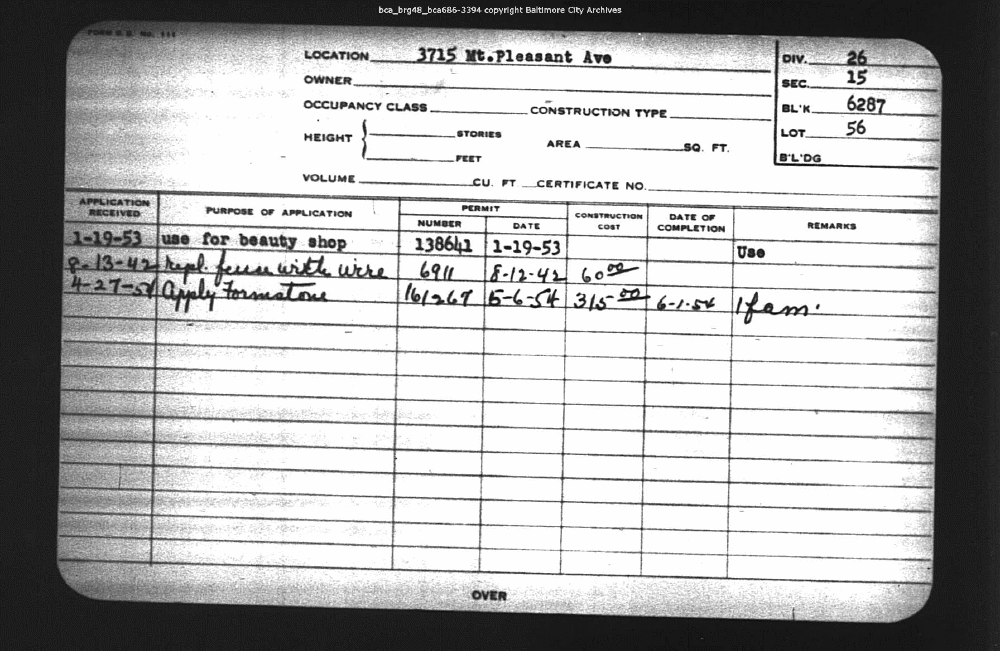 bca_brg48_bca686-3394 copyright Baltimore City Archives
LOCATION 3715 Mt.Pleasant Ave
OWNER
OCCUPANCY CLASS CONSTRUCTION TYPE
HEIGHT { STORIES
FEET
AREA SQ. FT.
VOLUME CU. FT CERTIFICATE NO.
DIV. 26
SEC. 15
BL'K 6287
LOT 56
B'L'DG
APPLICATION RECEIVED PURPOSE OF APPLICATION PERMIT NUMBER DATE CONSTRUCTION COST DATE OF COMPLETION REMARKS
1-19-53 use for beauty shop 138641 1-19-53 Use
8-13-42 repl. fence with wire 6911 8-12-42 60 00
4-27-54 Apply Formstone 161267 5-6-54 315 00 6-1-54 1 fam.
OVER